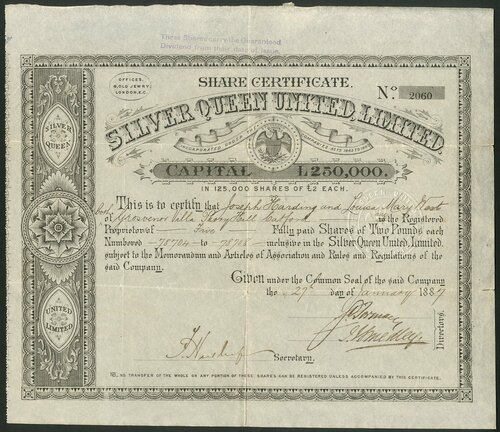 These Shares carry the Guaranteed
Dividend from their date of issue.
OFFICES,
9, OLD JEWRY,
LONDON, E.C.
SHARE CERTIFICATE.
No. 2060
SILVER QUEEN UNITED, LIMITED,
INCORPORATED UNDER THE COMPANIES ACTS 1862 TO
CAPITAL £250,000.
IN 125,000 SHARES OF £2 EACH.
SILVER
QUEEN
UNITED
LIMITED
This is to certify that Joseph Harding and Louisa Mary
both of Grosvenor Villa Hill Catford is the Registered
Proprietor of Five Fully paid Shares of Two Pounds each
Numbered 78704 to 78708 inclusive in the Silver Queen United, Limited,
subject to the Memorandum and Articles of Association and Rules and Regulations of the
said Company.
Given under the Common Seal of the said Company
the 27th day of January 1887
Directors.
Secretary.
NB. NO TRANSFER OF THE WHOLE OR ANY PORTION OF THESE SHARES CAN BE REGISTERED UNLESS ACCOMPANIED BY THIS CERTIFICATE.